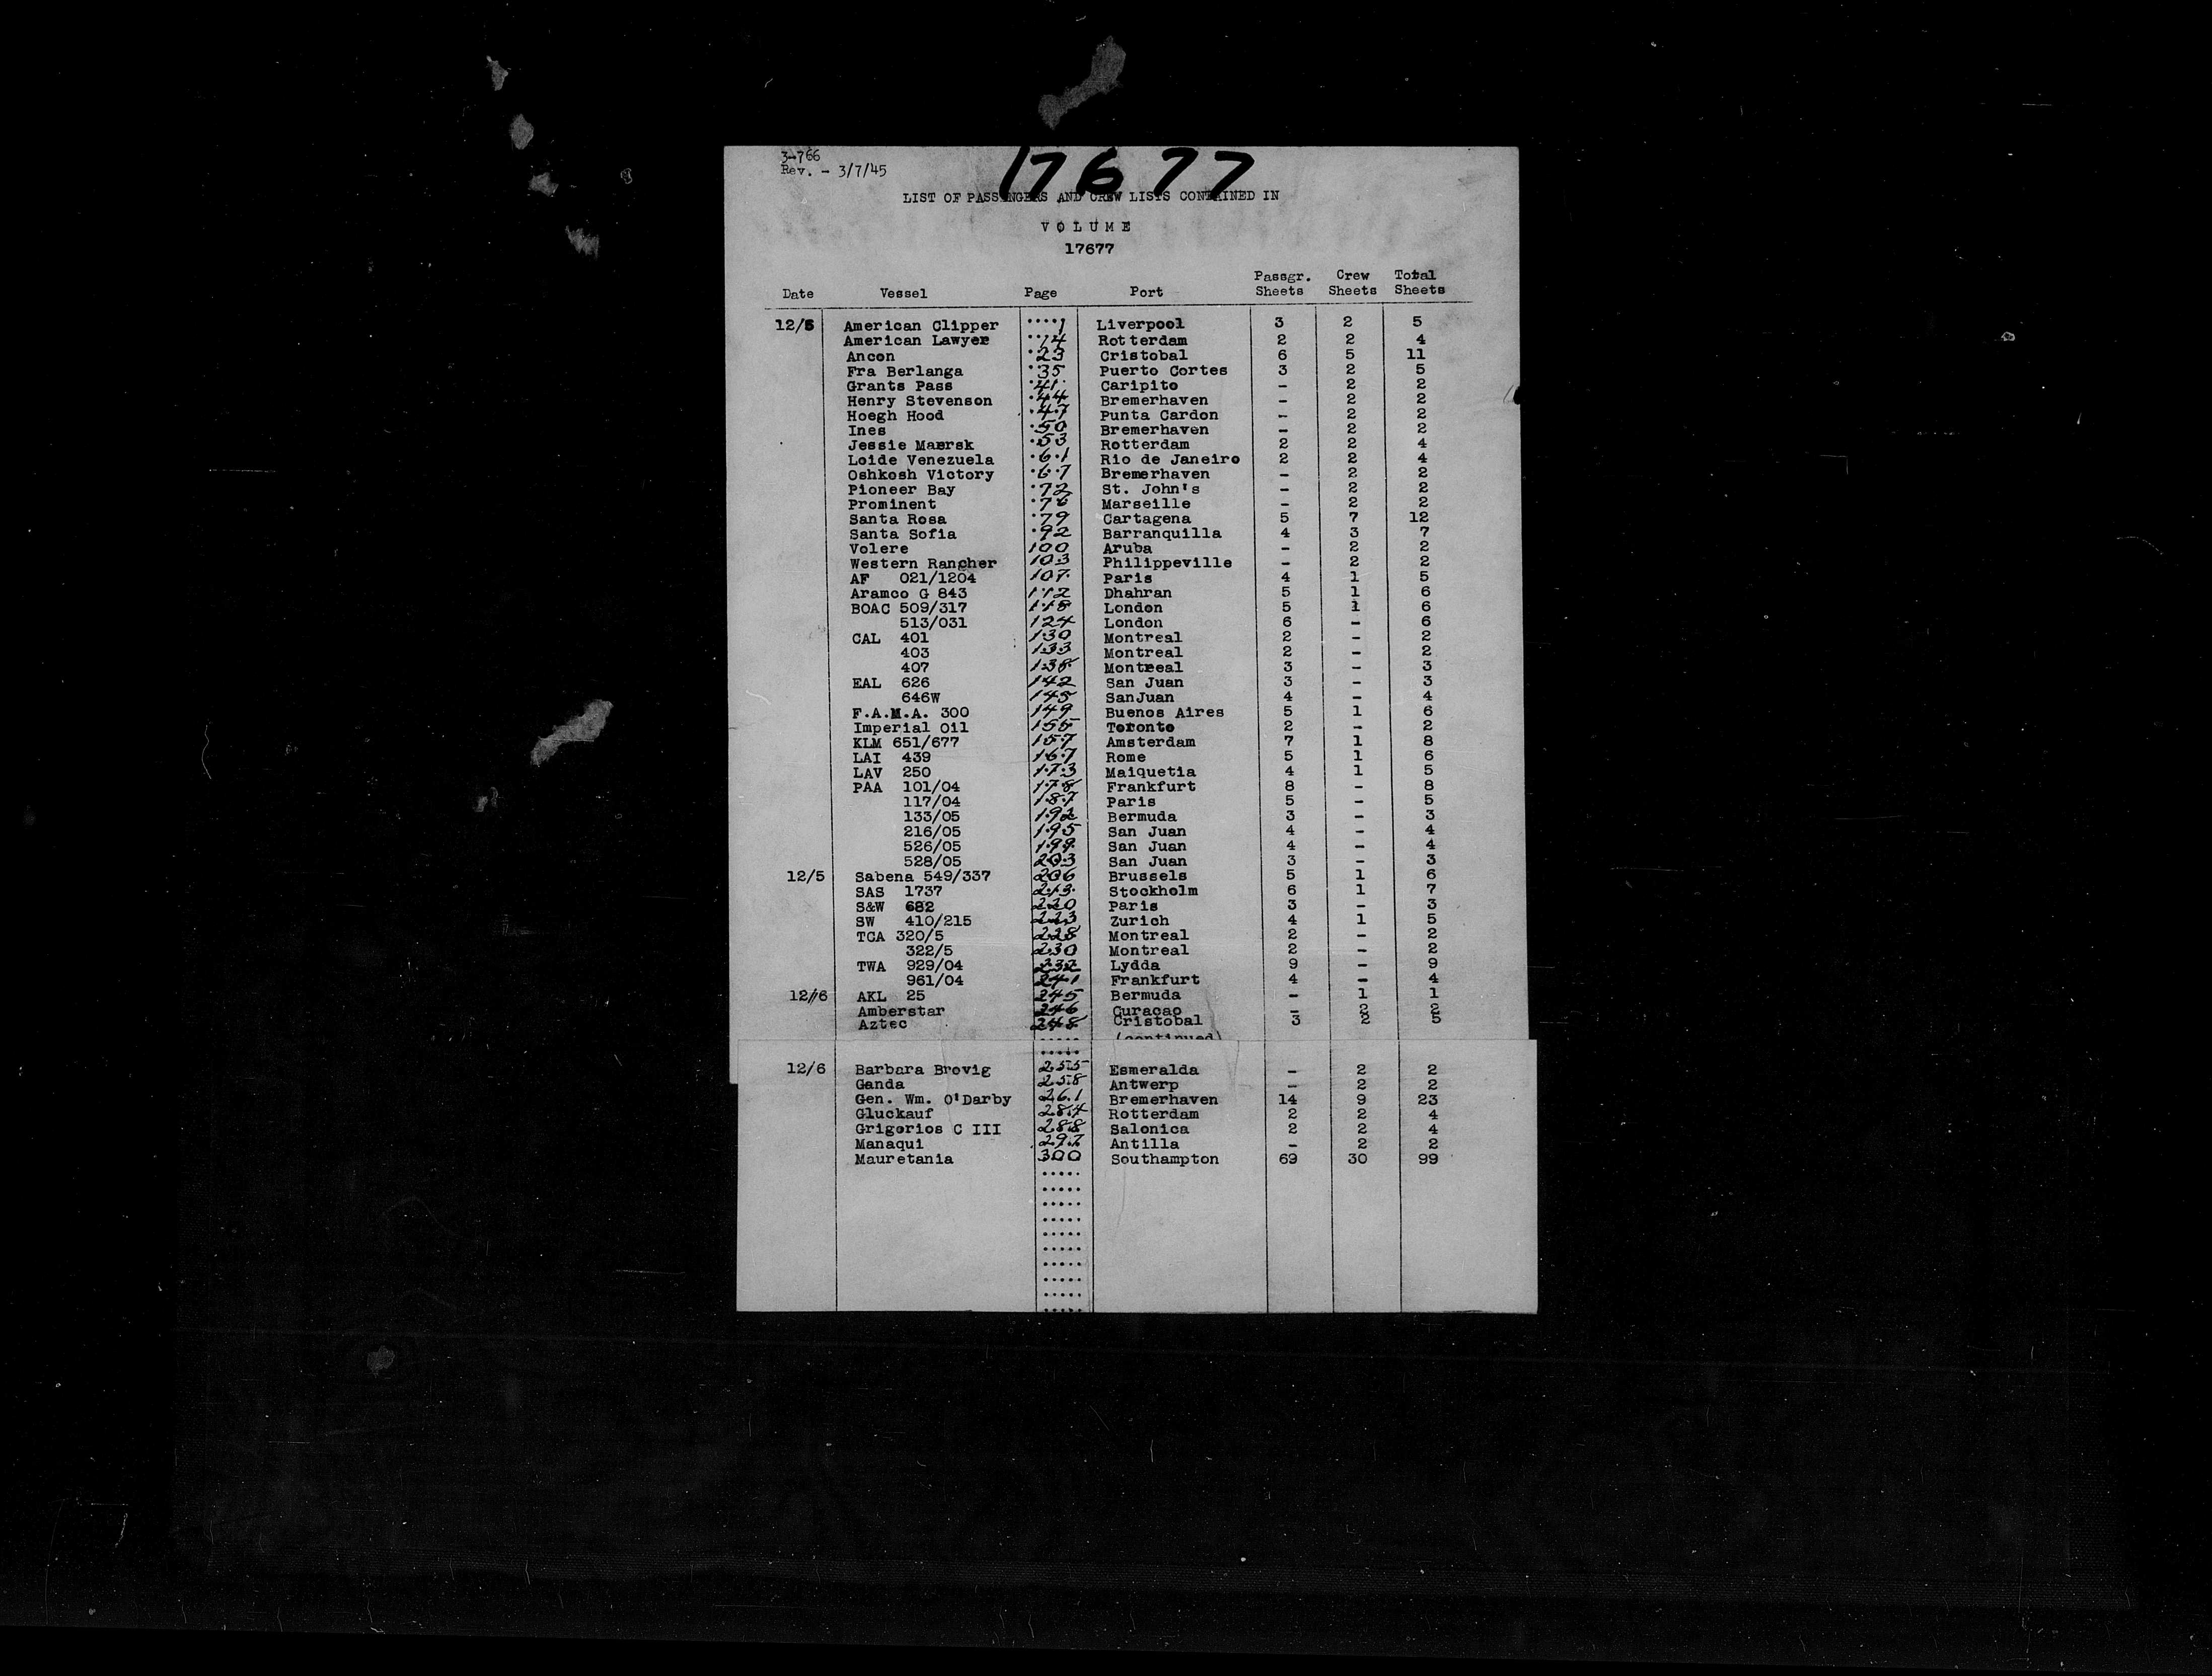 3-766
Rev. - 3/7/45
17677
LIST OF PASSENGERS AND CREW LISTS CONTAINED IN
VOLUME
17677
Date Vessel Page Port Passgr. Sheets Crew Sheets Total Sheets
12/5 American Clipper 1 Liverpool 3 2 5
American Lawyer 14 Rotterdam 2 2 4
Ancon 23 Cristobal 6 5 11
Fra Berlanga 35 Puerto Cortes 3 2 5
Grants Pass 41 Caripito - 2 2
Henry Stevenson 44 Bremerhaven - 2 2
Hoegh Hood 47 Punta Cardon - 2 2
Ines 50 Bremerhaven - 2 2
Jessie Maersk 53 Rotterdam 2 2 4
Loide Venezuela 61 Rio de Janeiro 2 2 4
Oshkosh Victory 67 Bremerhaven - 2 2
Pioneer Bay 72 St. John's - 2 2
Prominent 76 Marseille - 2 2
Santa Rosa 79 Cartagena 5 7 12
Santa Sofia 92 Barranquilla 4 3 7
Volere 100 Aruba - 2 2
Western Rancher 103 Philippeville - 2 2
AF 021/1204 107 Paris 4 1 5
Aramco G 843 112 Dhahran 5 1 6
BOAC 509/317 118 London 5 1 6
513/031 124 London 6 - 6
CAL 401 130 Montreal 2 - 2
403 133 Montreal 2 - 2
407 138 Montreal 3 - 3
EAL 626 142 San Juan 3 - 3
646W 145 SanJuan 4 - 4
F.A.M.A. 300 149 Buenos Aires 5 1 6
Imperial Oil 155 Toronto 2 - 2
KLM 651/677 157 Amsterdam 7 1 8
LAI 439 167 Rome 5 1 6
LAV 250 173 Maiquetia 4 1 5
PAA 101/04 178 Frankfurt 8 - 8
117/04 187 Paris 5 - 5
133/05 192 Bermuda 3 - 3
216/05 195 San Juan 4 - 4
526/05 199 San Juan 4 - 4
528/05 203 San Juan 3 - 3
12/5 Sabena 549/337 206 Brussels 5 1 6
SAS 1737 213 Stockholm 6 1 7
S&W 682 220 Paris 3 - 3
SW 410/215 223 Zurich 4 1 5
TCA 320/5 228 Montreal 2 - 2
322/5 230 Montreal 2 - 2
TWA 929/04 232 Lydda 9 - 9
961/04 241 Frankfurt 4 - 4
12/6 AKL 25 245 Bermuda - 1 1
Amberstar 246 Curacao - 2 2
Aztec 248 Cristobal 3 2 5
(continued)
12/6 Barbara Brovig 255 Esmeralda - 2 2
Ganda 258 Antwerp - 2 2
Gen. Wm. O'Darby 261 Bremerhaven 14 9 23
Gluckauf 284 Rotterdam 2 2 4
Grigorios C III 288 Salonica 2 2 4
Manaqui 297 Antilla - 2 2
Mauretania 300 Southampton 69 30 99